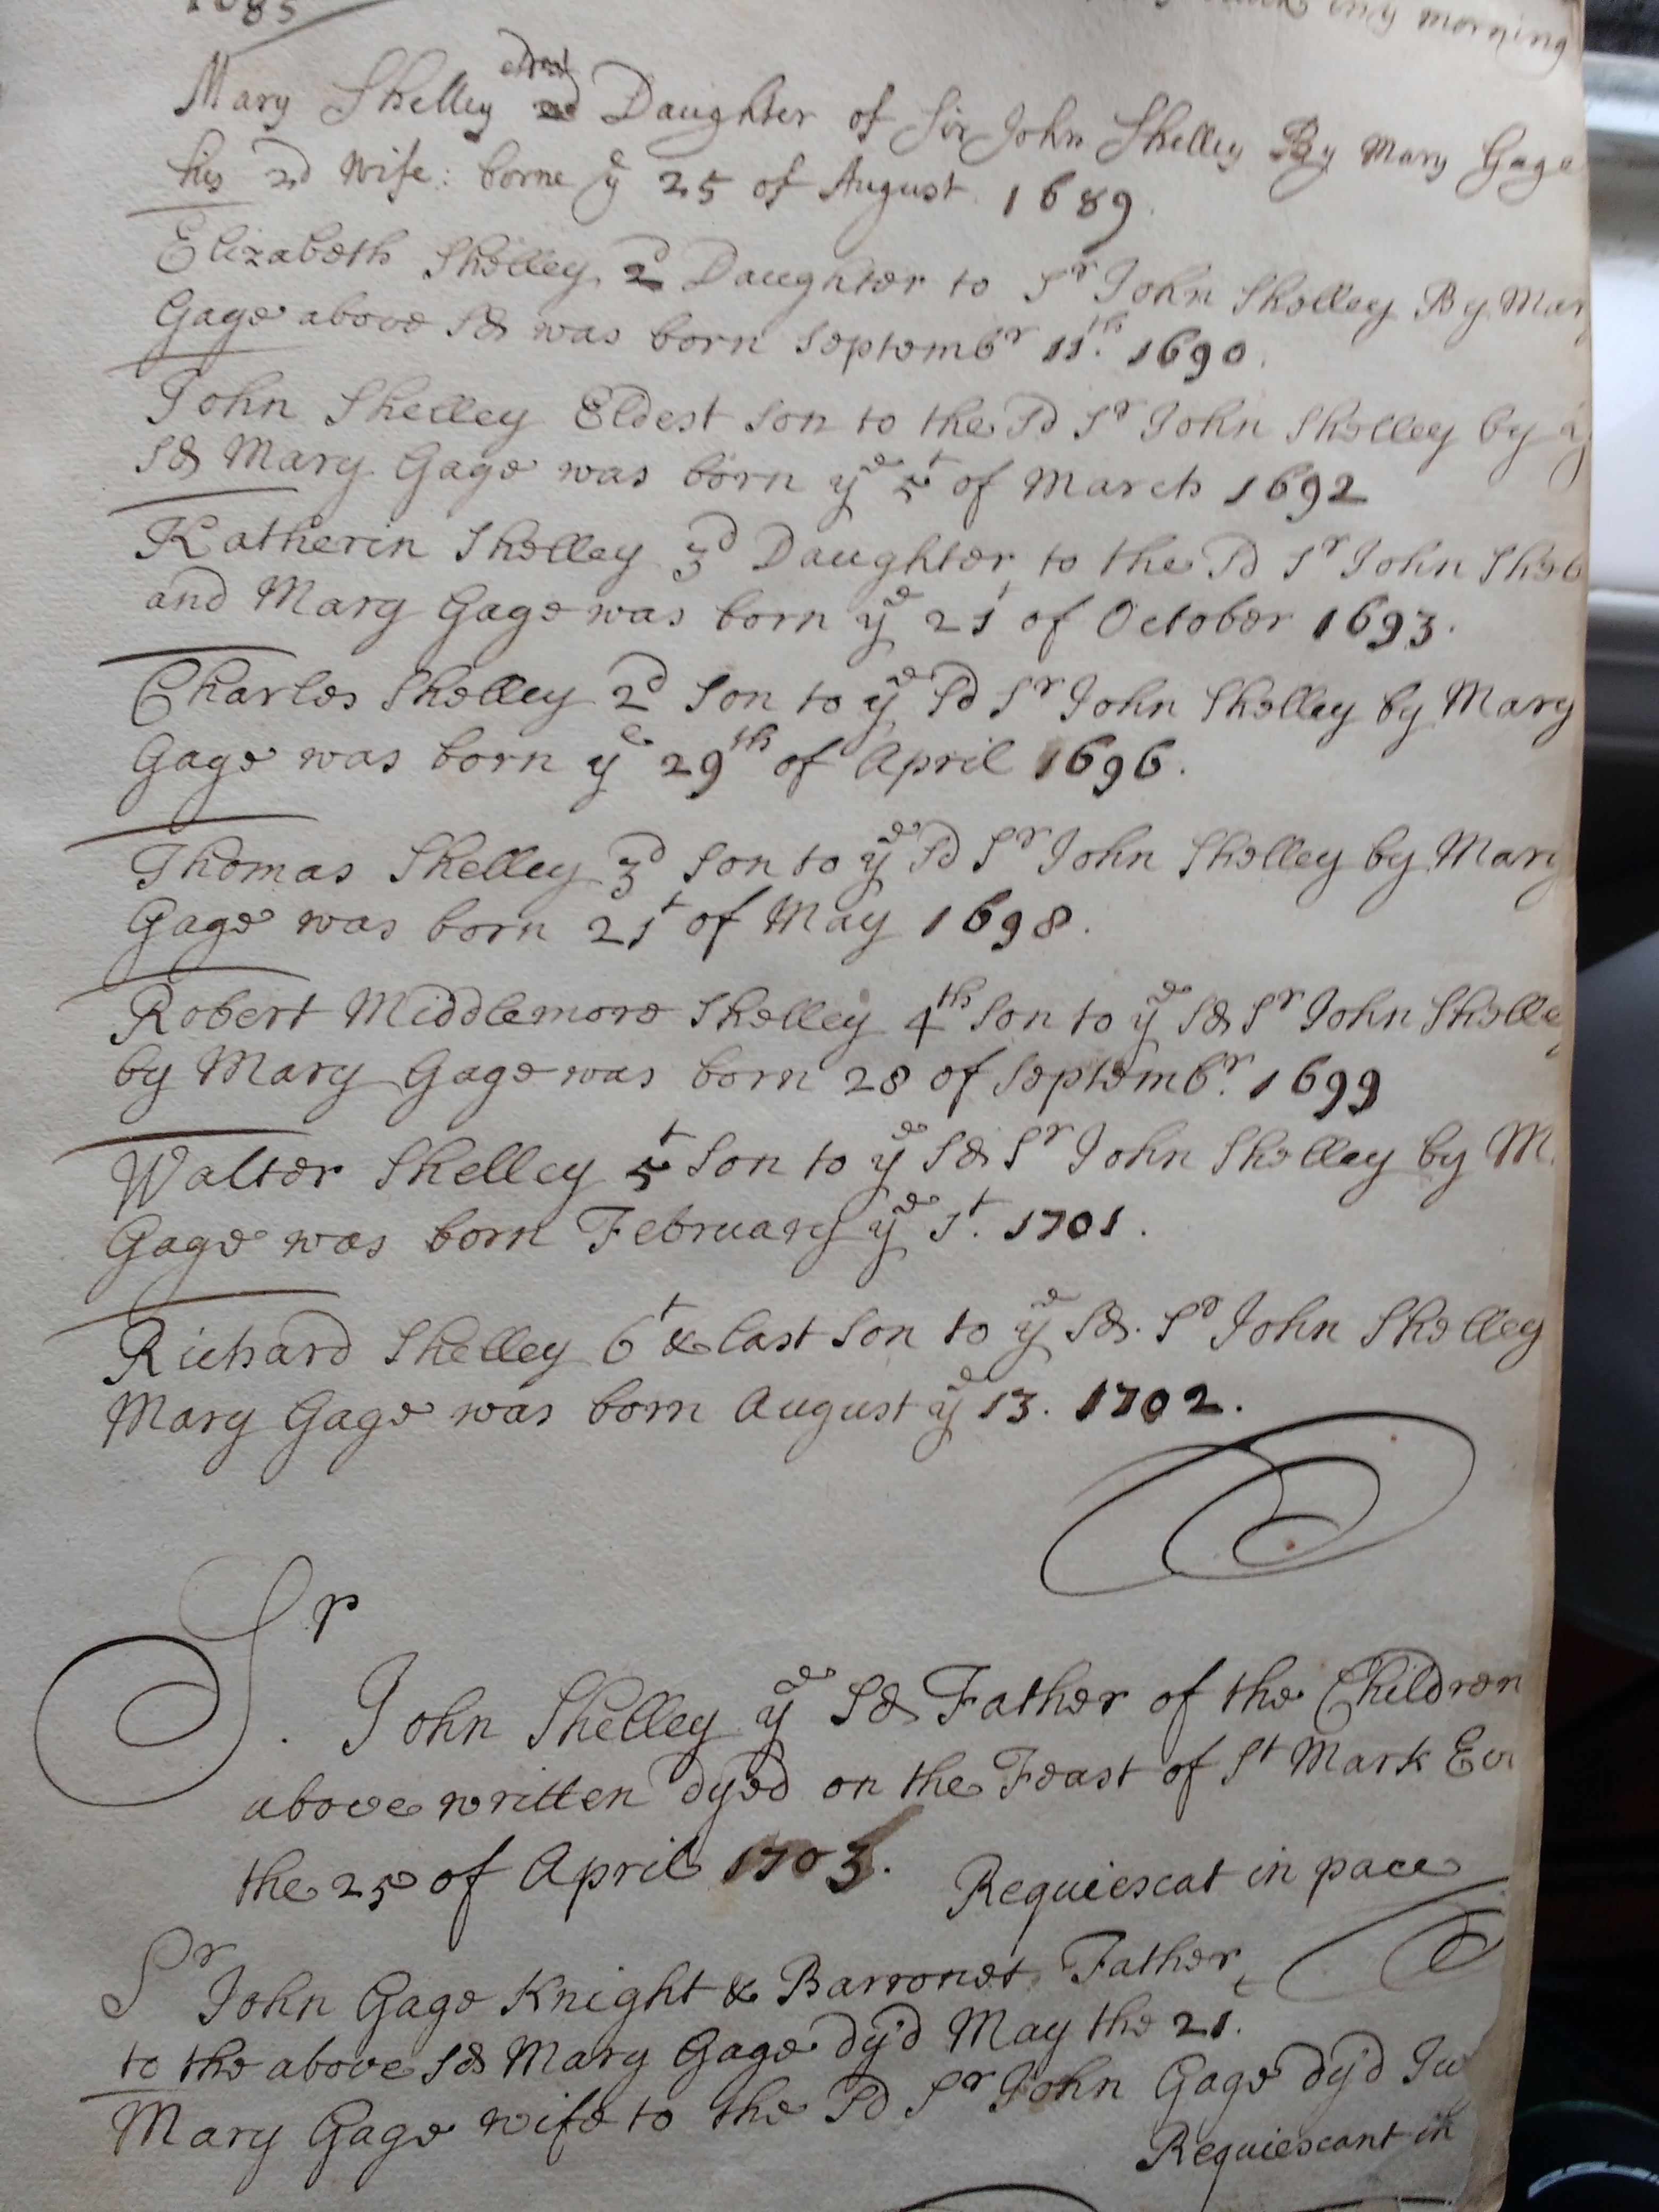 1685
morning
Mary Shelley eldest Daughter of Sir John Shelley By Mary Gage
his 2d Wife: borne ye 25 of August. 1689.
Elizabeth Shelley 2d Daughter to Sr John Shelley By Mar
Gage above sd was born Septembr 11th. 1690.
John Shelley Eldest Son to the sd Sr John Shelley by y
sd Mary Gage was born ye 5t of March 1692
Katherin Shelley 3d Daughter to the sd Sr John Shel
and Mary Gage was born ye 21t of October 1693.
Charles Shelley 2d Son to ye sd Sr John Shelley by Mary
Gage was born ye 29th of April 1696.
Thomas Shelley 3d Son to ye sd Sr John Shelley by Mary
Gage was born 21t of May 1698.
Robert Middlemore Shelley 4th Son to ye sd Sr John Shelle
by Mary Gage was born 28 of Septembr. 1699
Walter Shelley 5t Son to ye sd Sr John Shelley by M
Gage was born February ye 1t. 1701.
Richard Shelley 6t & last Son to ye sd. Sr John Shelley
Mary Gage was born August ye 13. 1702.
Sr. John Shelley ye sd Father of the Children
above written dyed on the Feast of St Mark Ev
the 25 of April 1703. Requiescat in pace
Sr John Gage Knight & Barronet Father
to the above sd Mary Gage dy'd May the 21t.
Mary Gage wife to the sd Sr John Gage dy'd Ju
Requiescant in